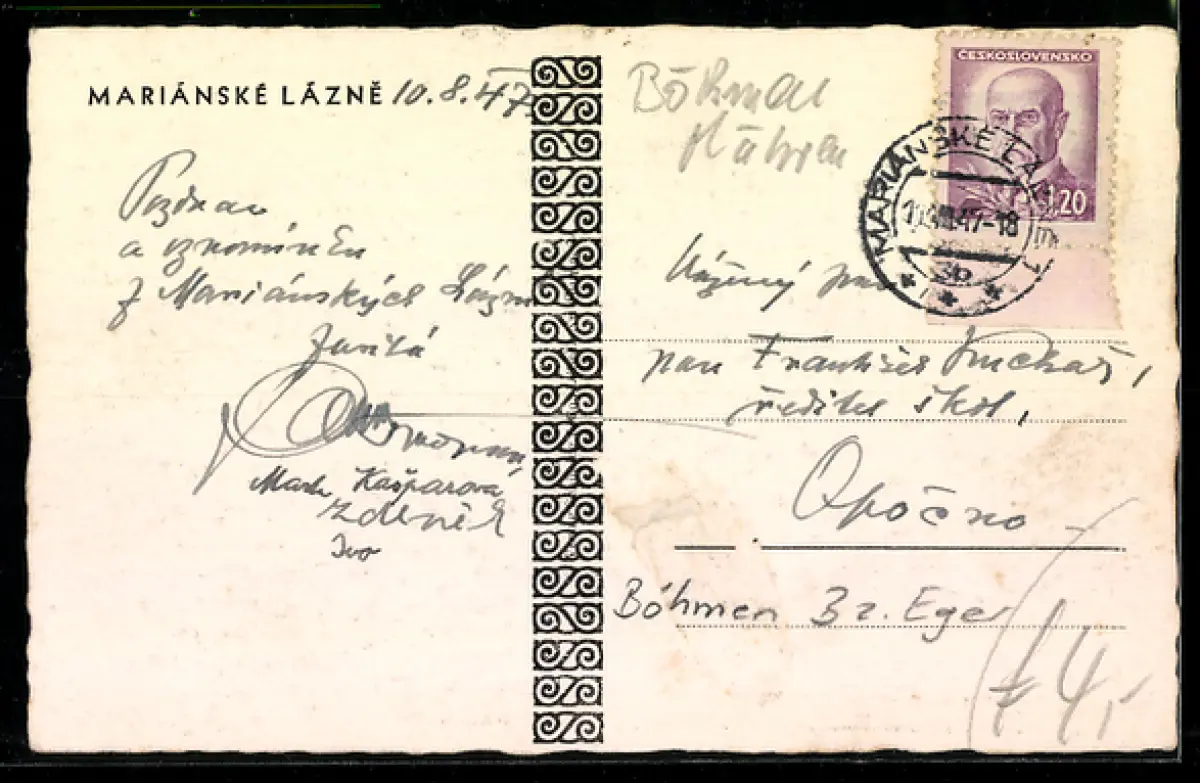 MARIÁNSKÉ LÁZNĚ 10.8.47
Pozdrav
a vzpomínku
z Mariánských Lázní
Kašparová
Zdeněk
Ivo
Böhmen
Mähren
ČESKOSLOVENSKO
1.20
MARIÁNSKÉ LÁZNĚ 1
VIII.47-18
Vážený pan
pan František
ředitel škol,
Opočno
Böhmen Bz. Eger
4,